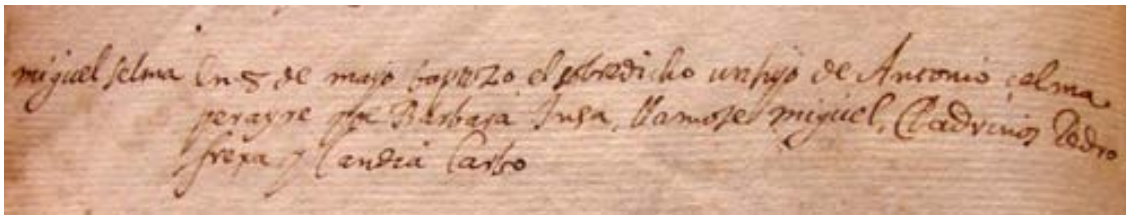 miguel selma En 8 de mayo baptizo el sobredicho un hijo de Antonio çalma
perayre y de Barbara Insa, llamose miguel, Padrinos Pedro
frexa y Candia Carbo